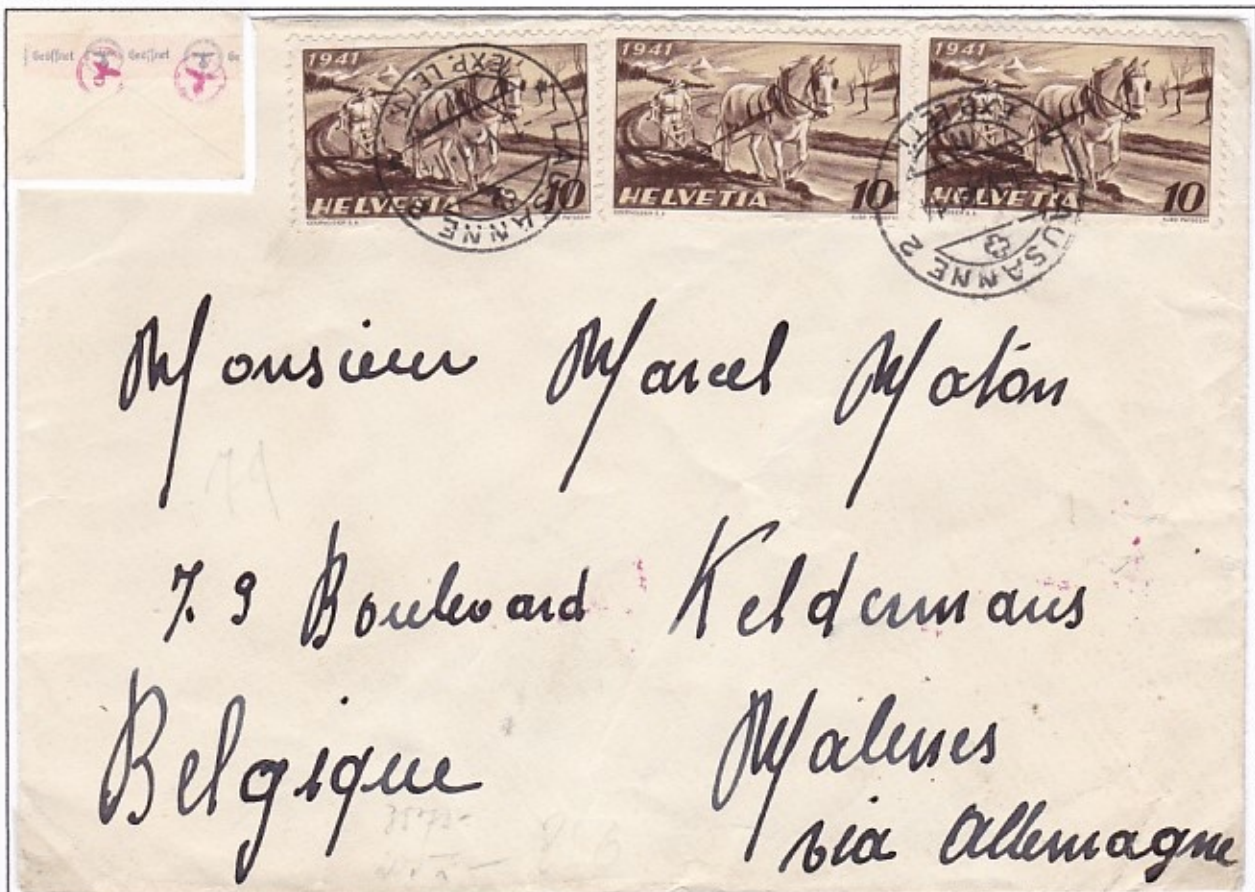 Geöffnet Geöffnet Ge
1941 1941 1941
10 10 10
HELVETIA HELVETIA HELVETIA
LAUSANNE 2
EXP. LE
LAUSANNE 2
EXP. LETT
Monsieur Marcel Maton
79 Boulevard Keldermans
Belgique Malines
via Allemagne